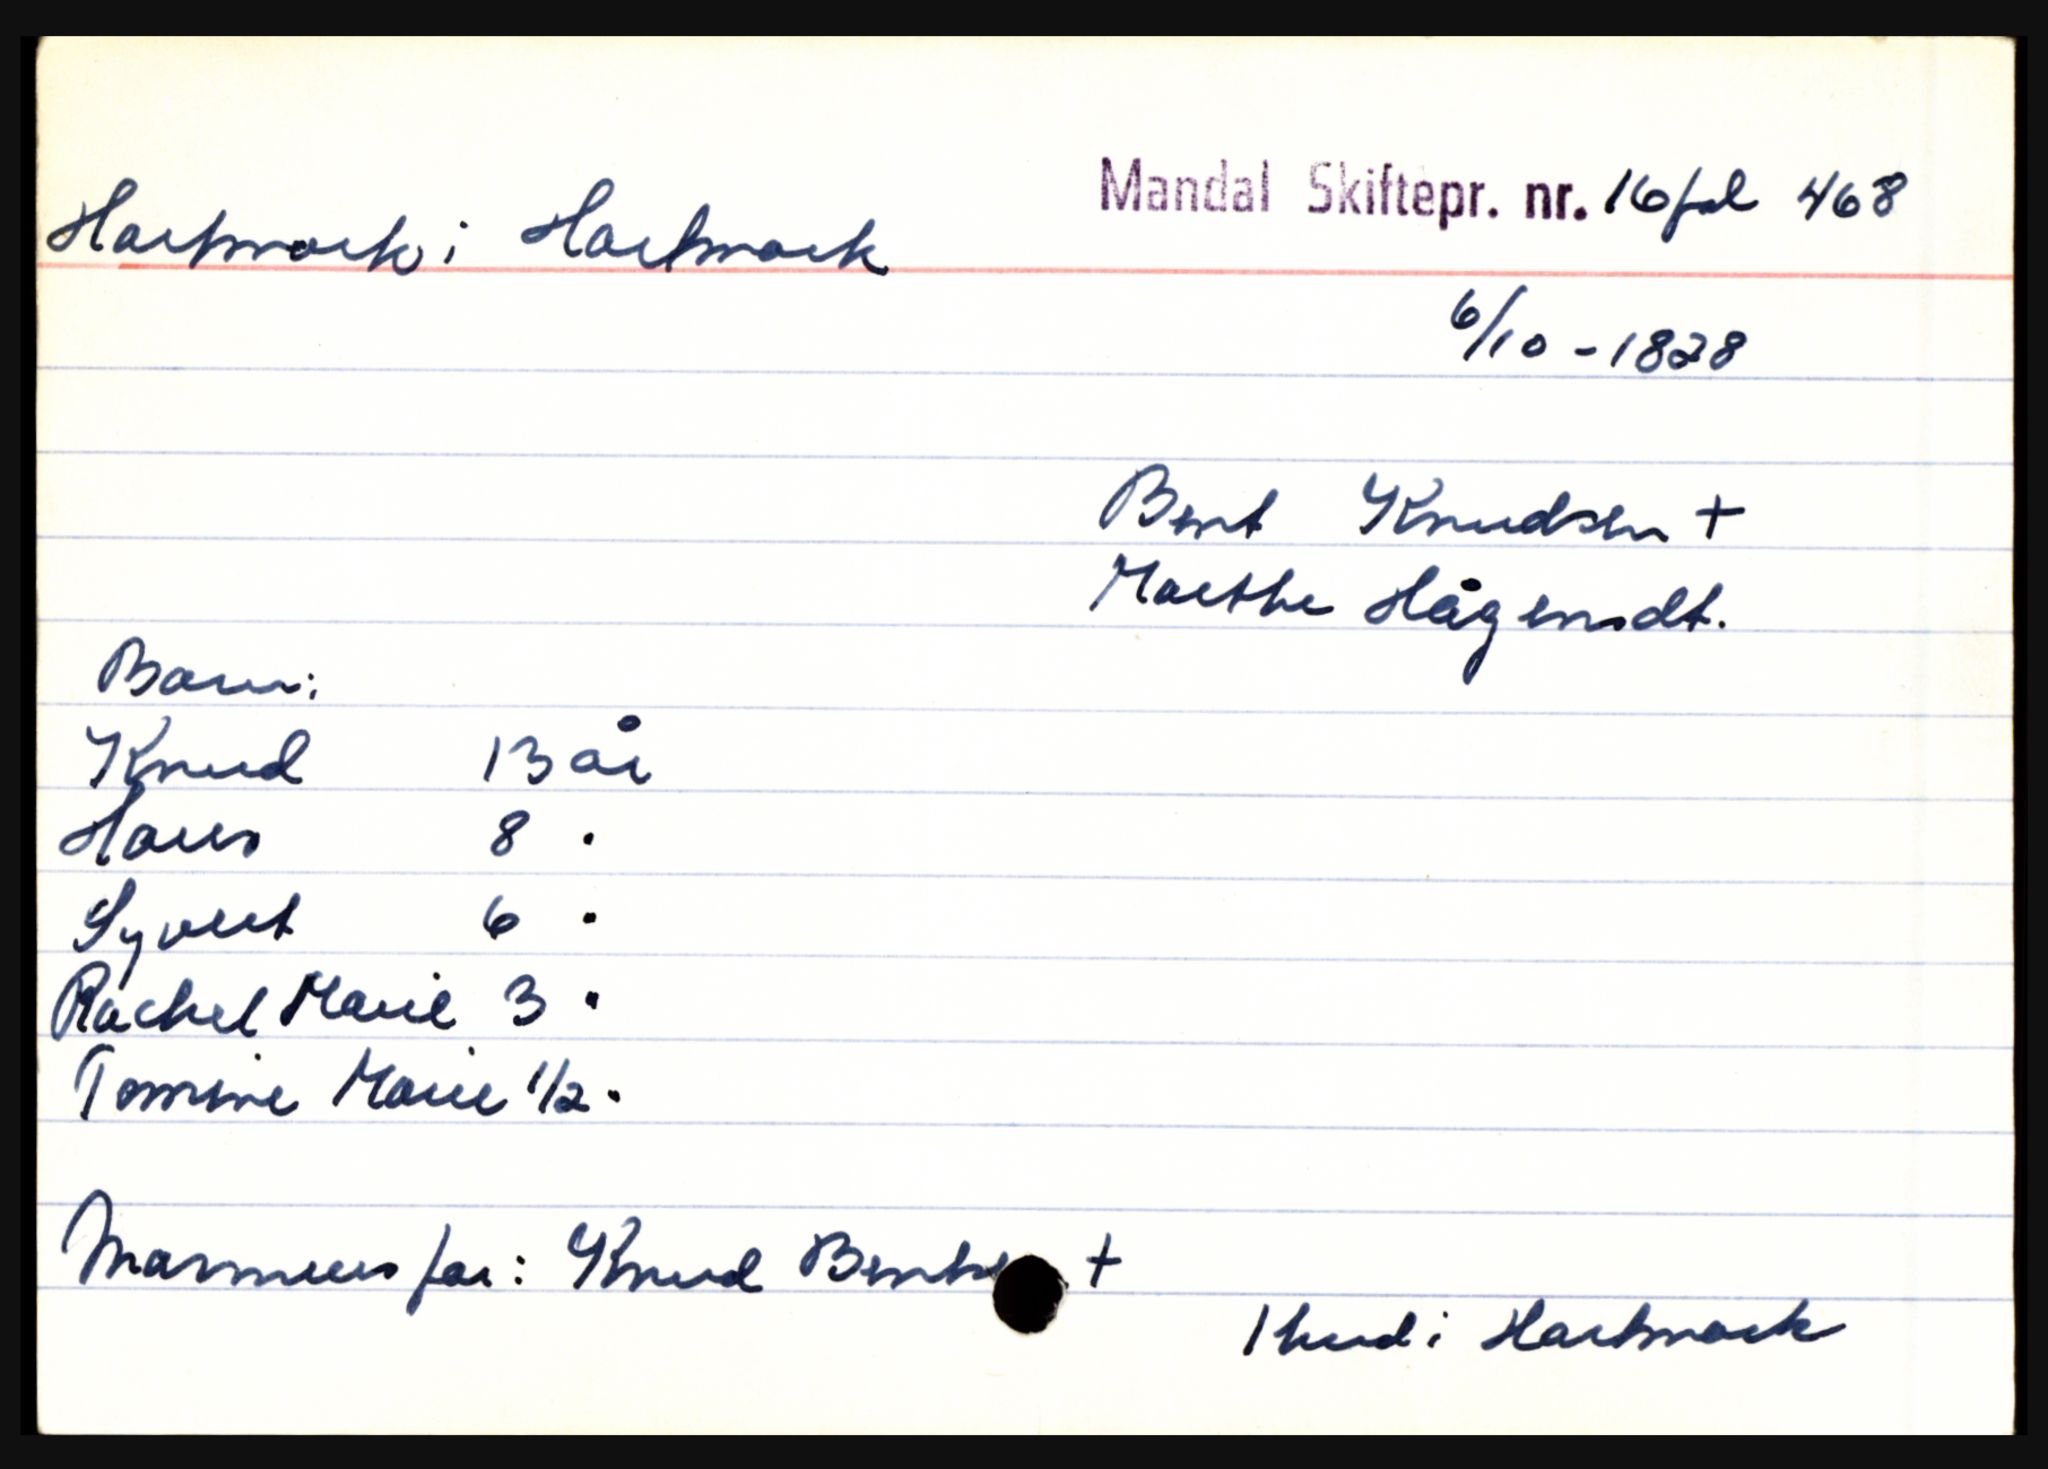 Hartmark i Hartmark
Mandal Skiftepr. nr. 16 fol 468
6/10 - 1828
Bent Knudsen +
Marthe Hågensdt.
Barn:
Knud 13 år
Hans 8 "
Syvert 6 "
Rachel Marie 3 "
Tomine Marie 1/2 "
Mannens far: Knud +
1 hud i Hartmark